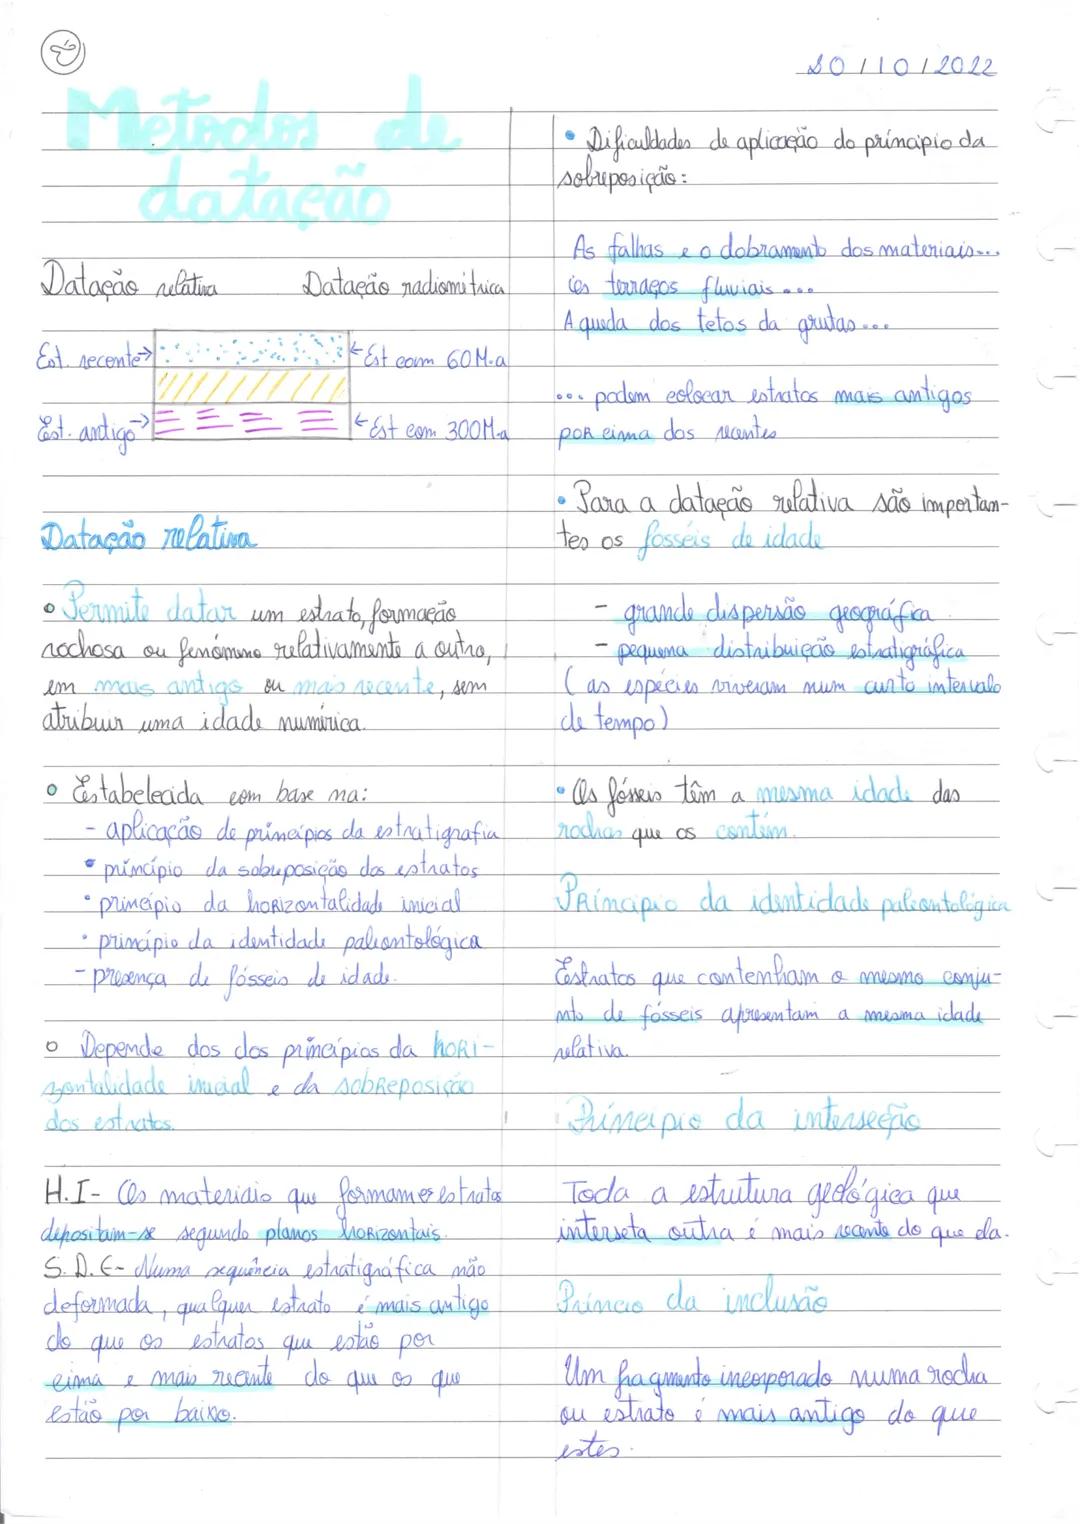 10/10/2022
Metodos de
datação
Datação relativa Datação radiométrica
Est. recente Est com 60 M.a
Est. antigo Est com 300 M.a
Datação relativa
Permite datar um estrato, formação
rochosa ou fenómeno relativamente a outro,
em mais antigo ou mais recente, sem
atribuir uma idade numérica.
Estabelecida com base na:
- aplicação de princípios da estratigrafia
• princípio da sobreposição dos estratos
• princípio da horizontalidade inicial
• princípio da identidade paleontológica
- presença de fósseis de idade.
Depende dos dos princípios da hori-
zontalidade inicial e da sobreposição
dos estratos.
H.I- Os materiais que formam os estratos
depositam-se segundo planos horizontais.
S.D.E- Numa sequência estratigráfica não
deformada, qualquer estrato é mais antigo
do que os estratos que estão por
cima e mais recente do que os que
estão por baixo.
• Dificuldades de aplicação do príncipio da
sobreposição:
As falhas e o dobramento dos materiais...
Os terraços fluviais...
A queda dos tetos da grutas...
... podem colocar estratos mais antigos
por cima dos recentes
• Para a datação relativa são importan-
tes os fósseis de idade
- grande dispersão geográfica
- pequena distribuição estratigráfica
(as espécies viveram num curto intervalo
de tempo)
• Os fósseis têm a mesma idade das
rochas que os contém.
Príncipio da identidade paleontológica
Estratos que contenham o mesmo conju-
nto de fósseis apresentam a mesma idade
relativa.
Príncipio da interseção
Toda a estrutura geológica que
interseta outra é mais recente do que ela.
Príncio da inclusão
Um fragmento incorporado numa rocha
ou estrato é mais antigo do que
estes.